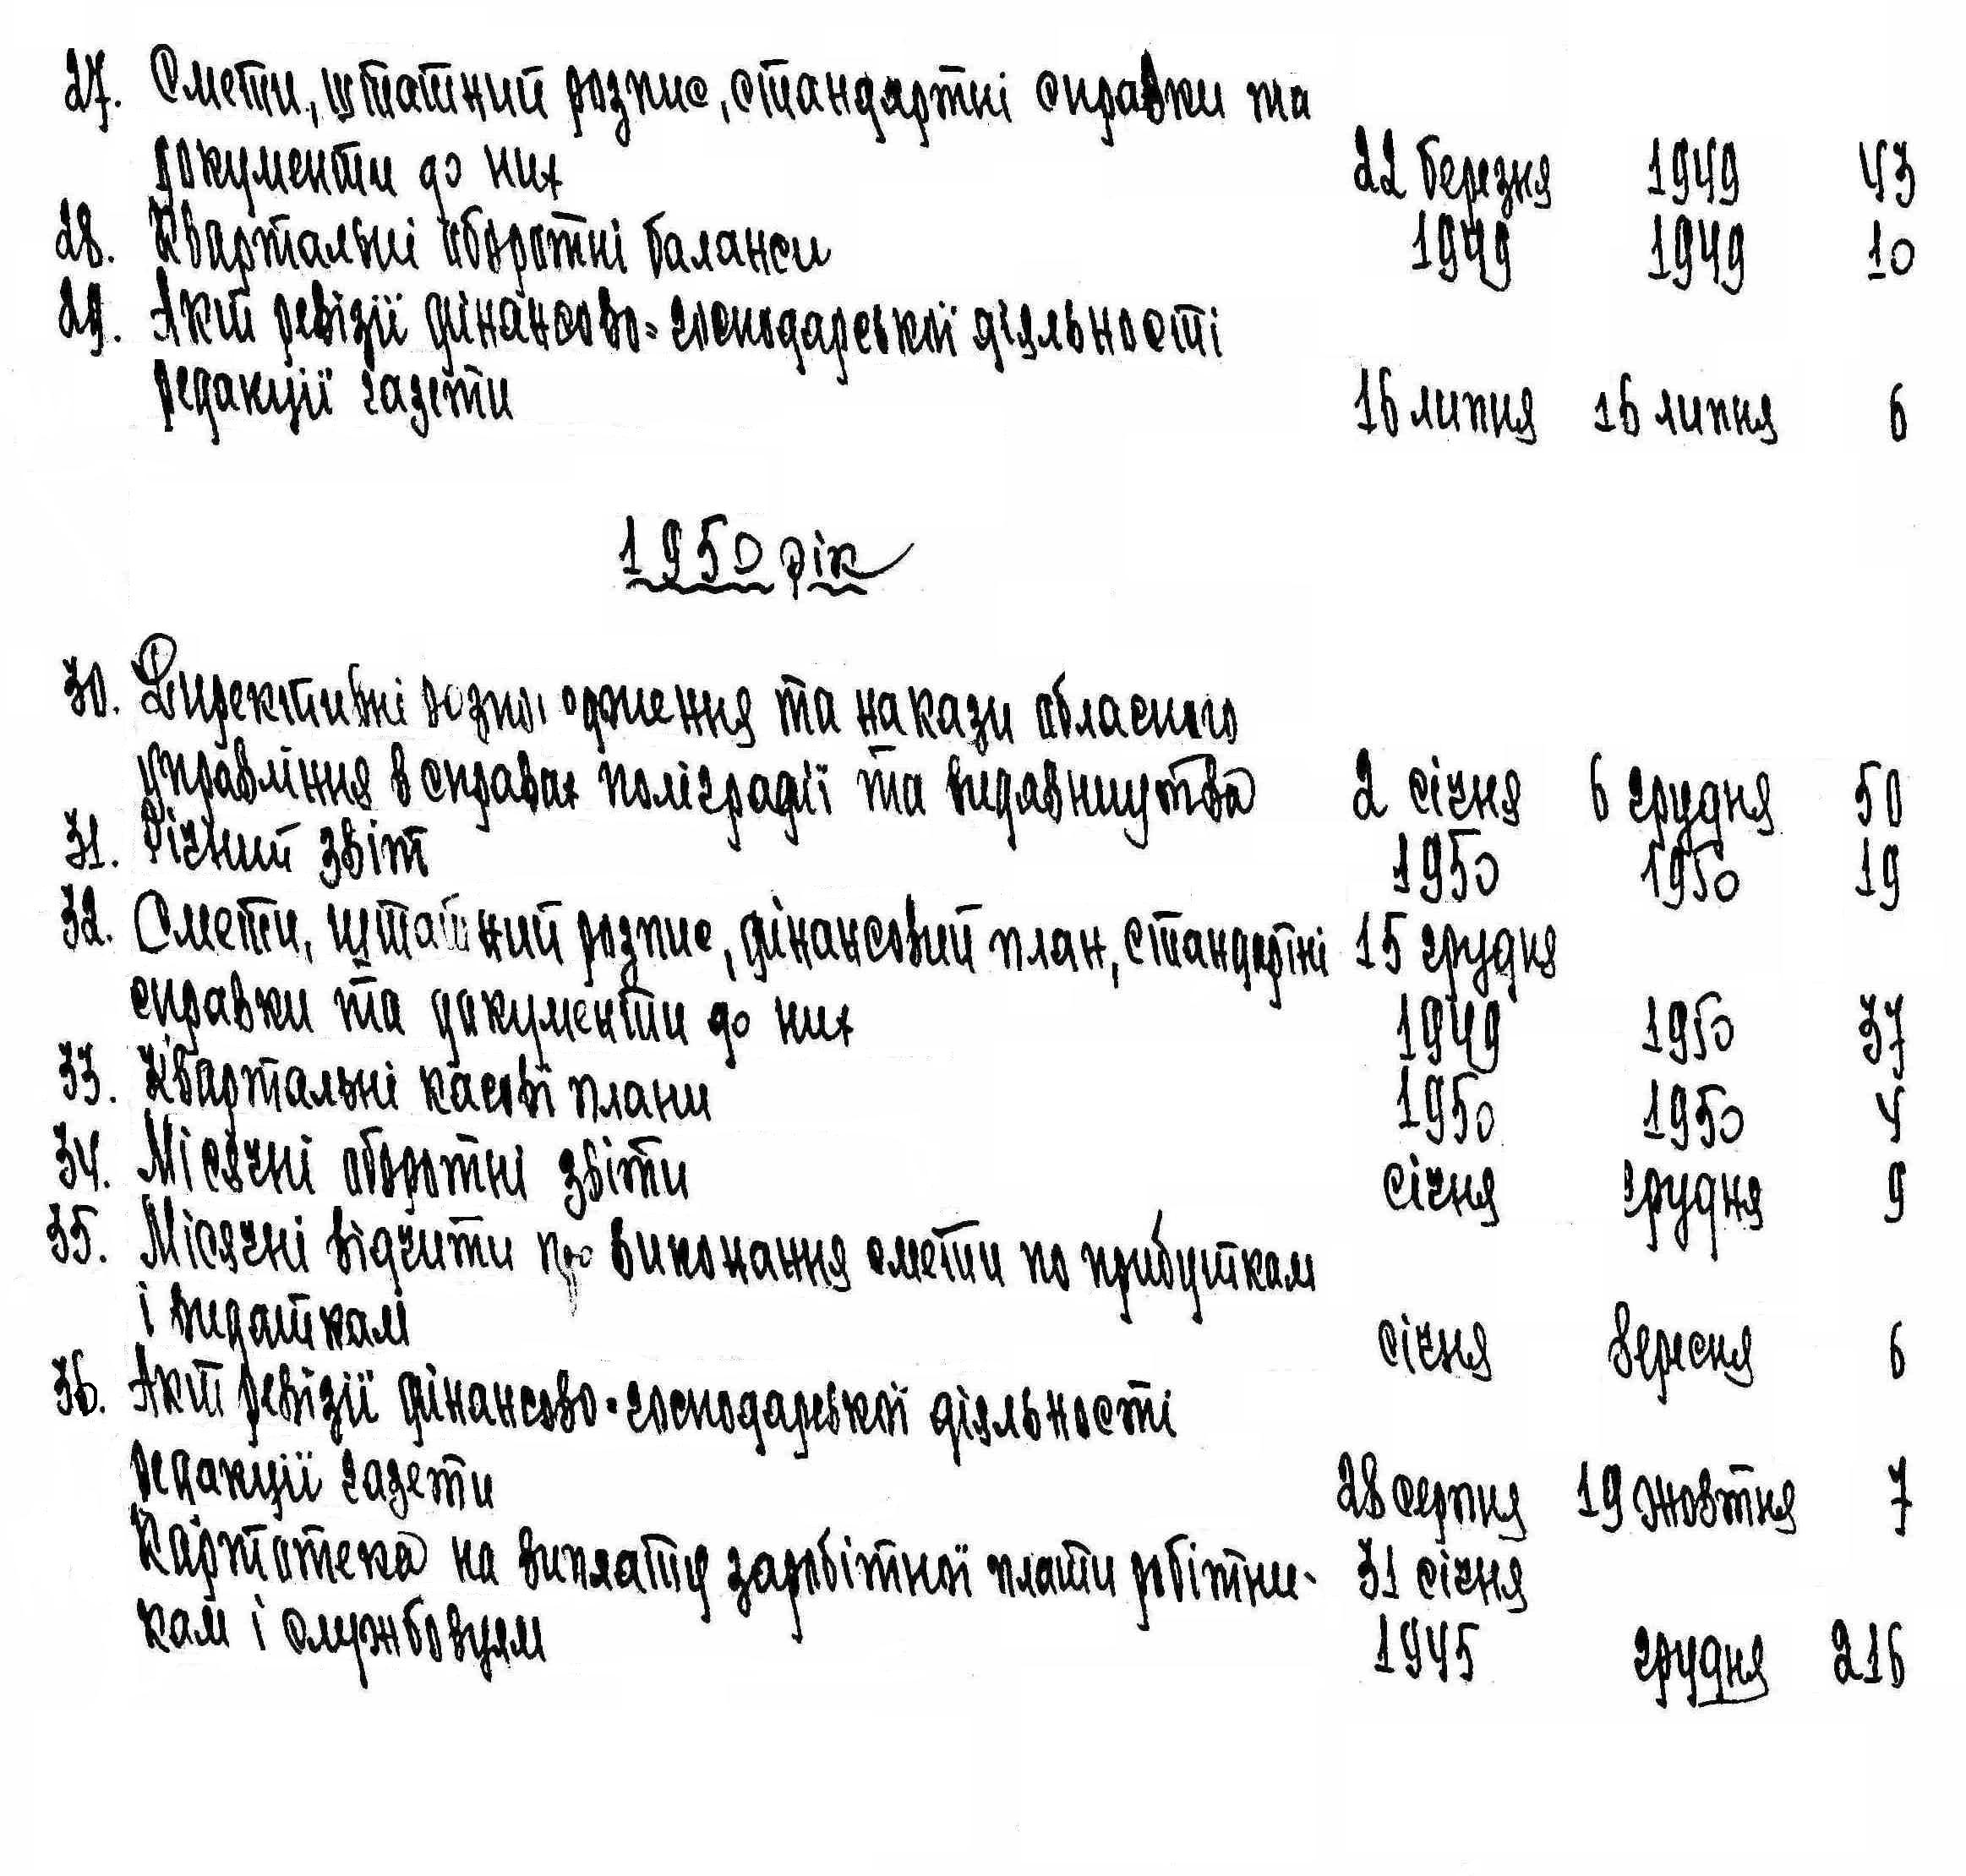 27. Смети, штатний розпис, стандартні справки та
документи до них 22 березня 1949 43
28. Квартальні оборотні баланси 1949 1949 10
29. Акт ревізії фінансово-господарської діяльності
редакції газети 16 липня 16 липня 6
1950 рік
30. Директивні розпорядження та накази обласного
управління в справах поліграфії та видавництва 2 січня 6 грудня 50
31. Річний звіт 1950 1950 19
32. Смети, штатний розпис, фінансовий план, стандартні 15 грудня
справки та документи до них 1949 1950 37
33. Квартальні касові плани 1950 1950 4
34. Місячні оборотні звіти січня грудня 9
35. Місячні відчити про виконання смети по прибуткам
і видаткам січня вересня 6
36. Акт ревізії фінансово-господарської діяльності
редакції газети 28 серпня 19 жовтня 7
Картотека на виплату заробітної плати робітни- 31 січня
кам і службовцям 1945 грудня 216